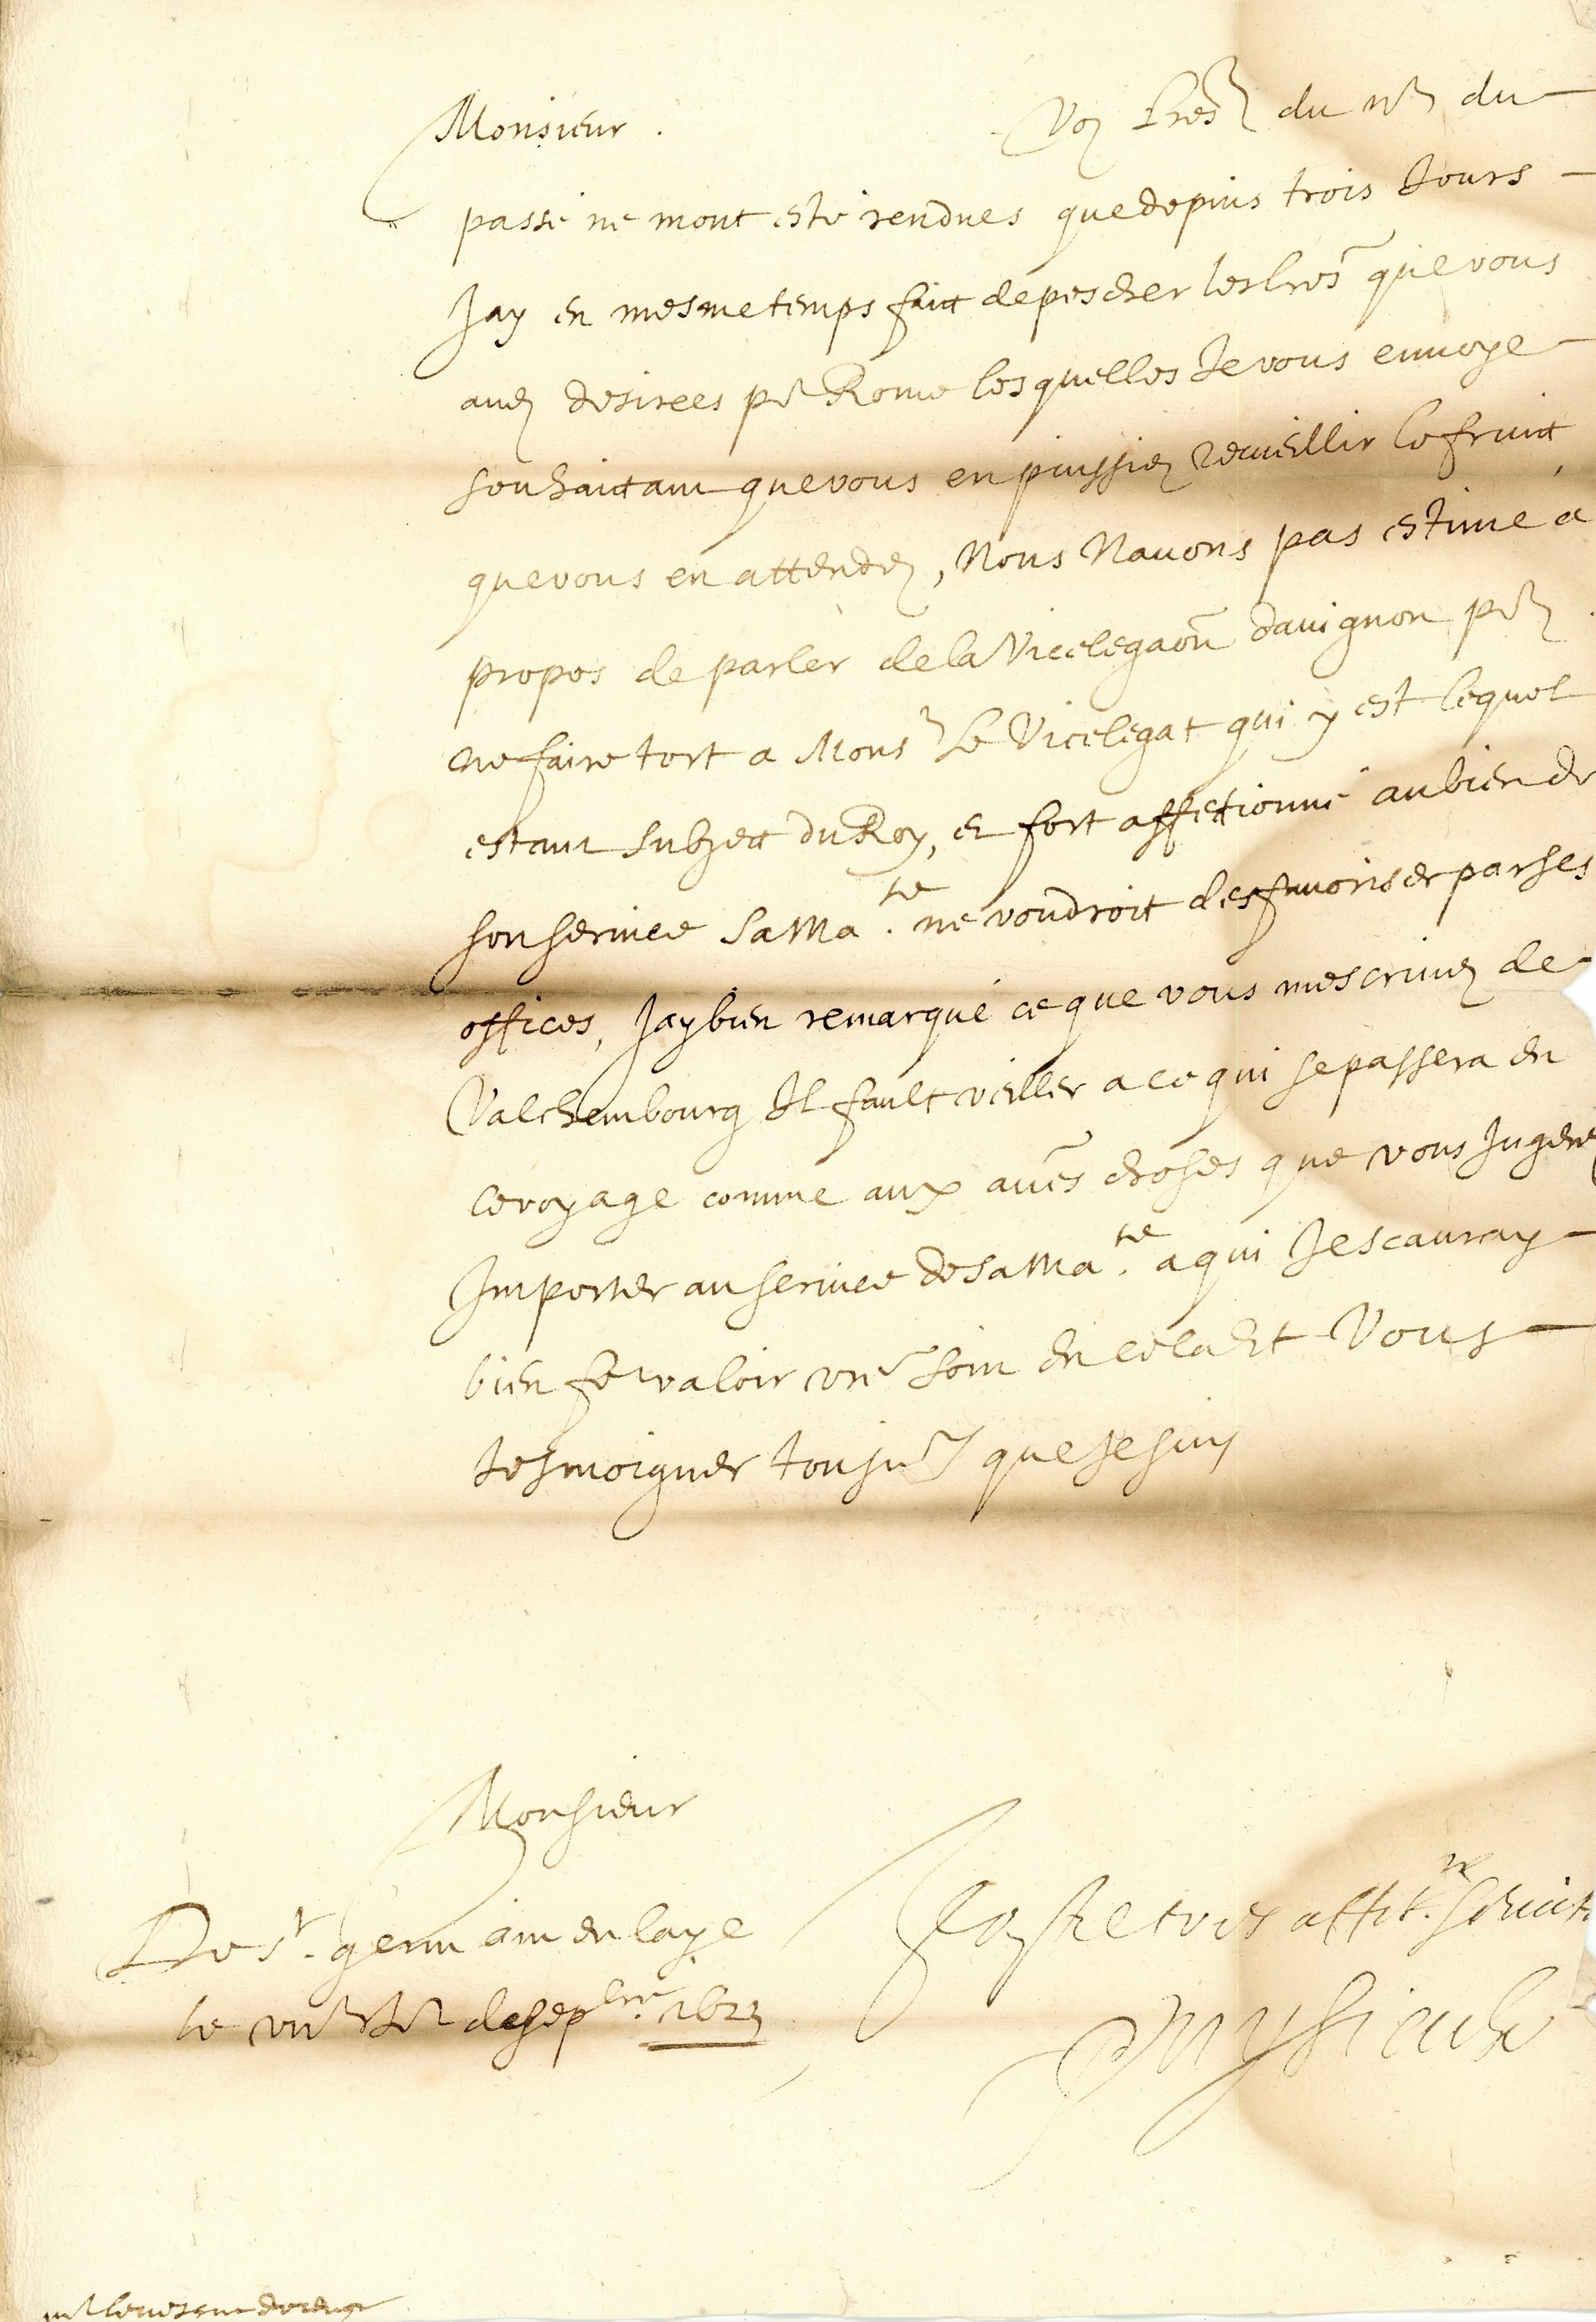 Monsieur . Voz lres du du
passé ne mont esté rendues que depuis trois Jours
Jay en mesme temps faict depescher les lres que vous
auez desirees pr Rome lesquelles Je vous enuoye
souhaittant que vous en puissiez recueillir le fruict
que vous en attendez, Nous Nauons pas estimé a
propos de parler de la Vicelegaon dauignon pr
ne faire tort a Monsr le Vicelegat qui y est lequel
estant subject du Roy, et fort affectionné au bien de
son seruice sa Mate. ne voudroit par ses
offices, Jay bien remarqué ce que vous mescriuez de
Valchembourg Il fault veiller a ce qui se passera en
ce voyage comme aux aues choses que vous Jugerez
Importer au seruice de sa Mate. a qui Je scauray
bien fe valoir vre soin en cela Et Vous
tesmoigner tousjrs que Je suis
Monsieur
De St. germain en laye
le de sepbre. 1623
Vostre tres afftné. seruite
Puysieulx